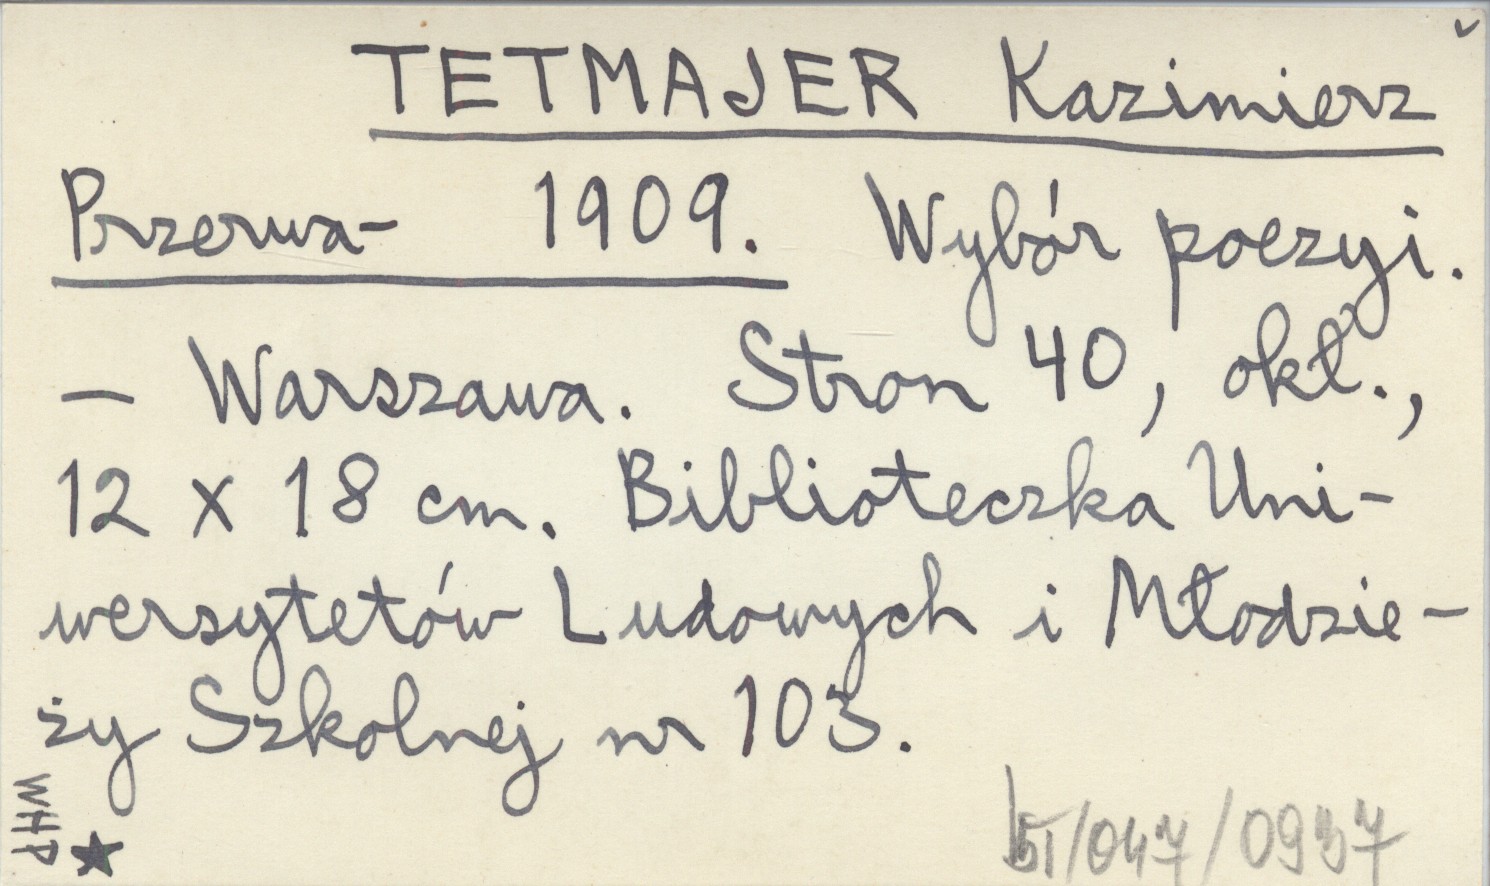 TETMAJER Kazimierz
Przerwa- 1909. Wybór poezyi.
– Warszawa. Stron 40, okł.,
12 x 18 cm. Biblioteczka Uni-
wersytetów Ludowych i Młodzie-
ży Szkolnej nr 103.
WHP
/047/0937